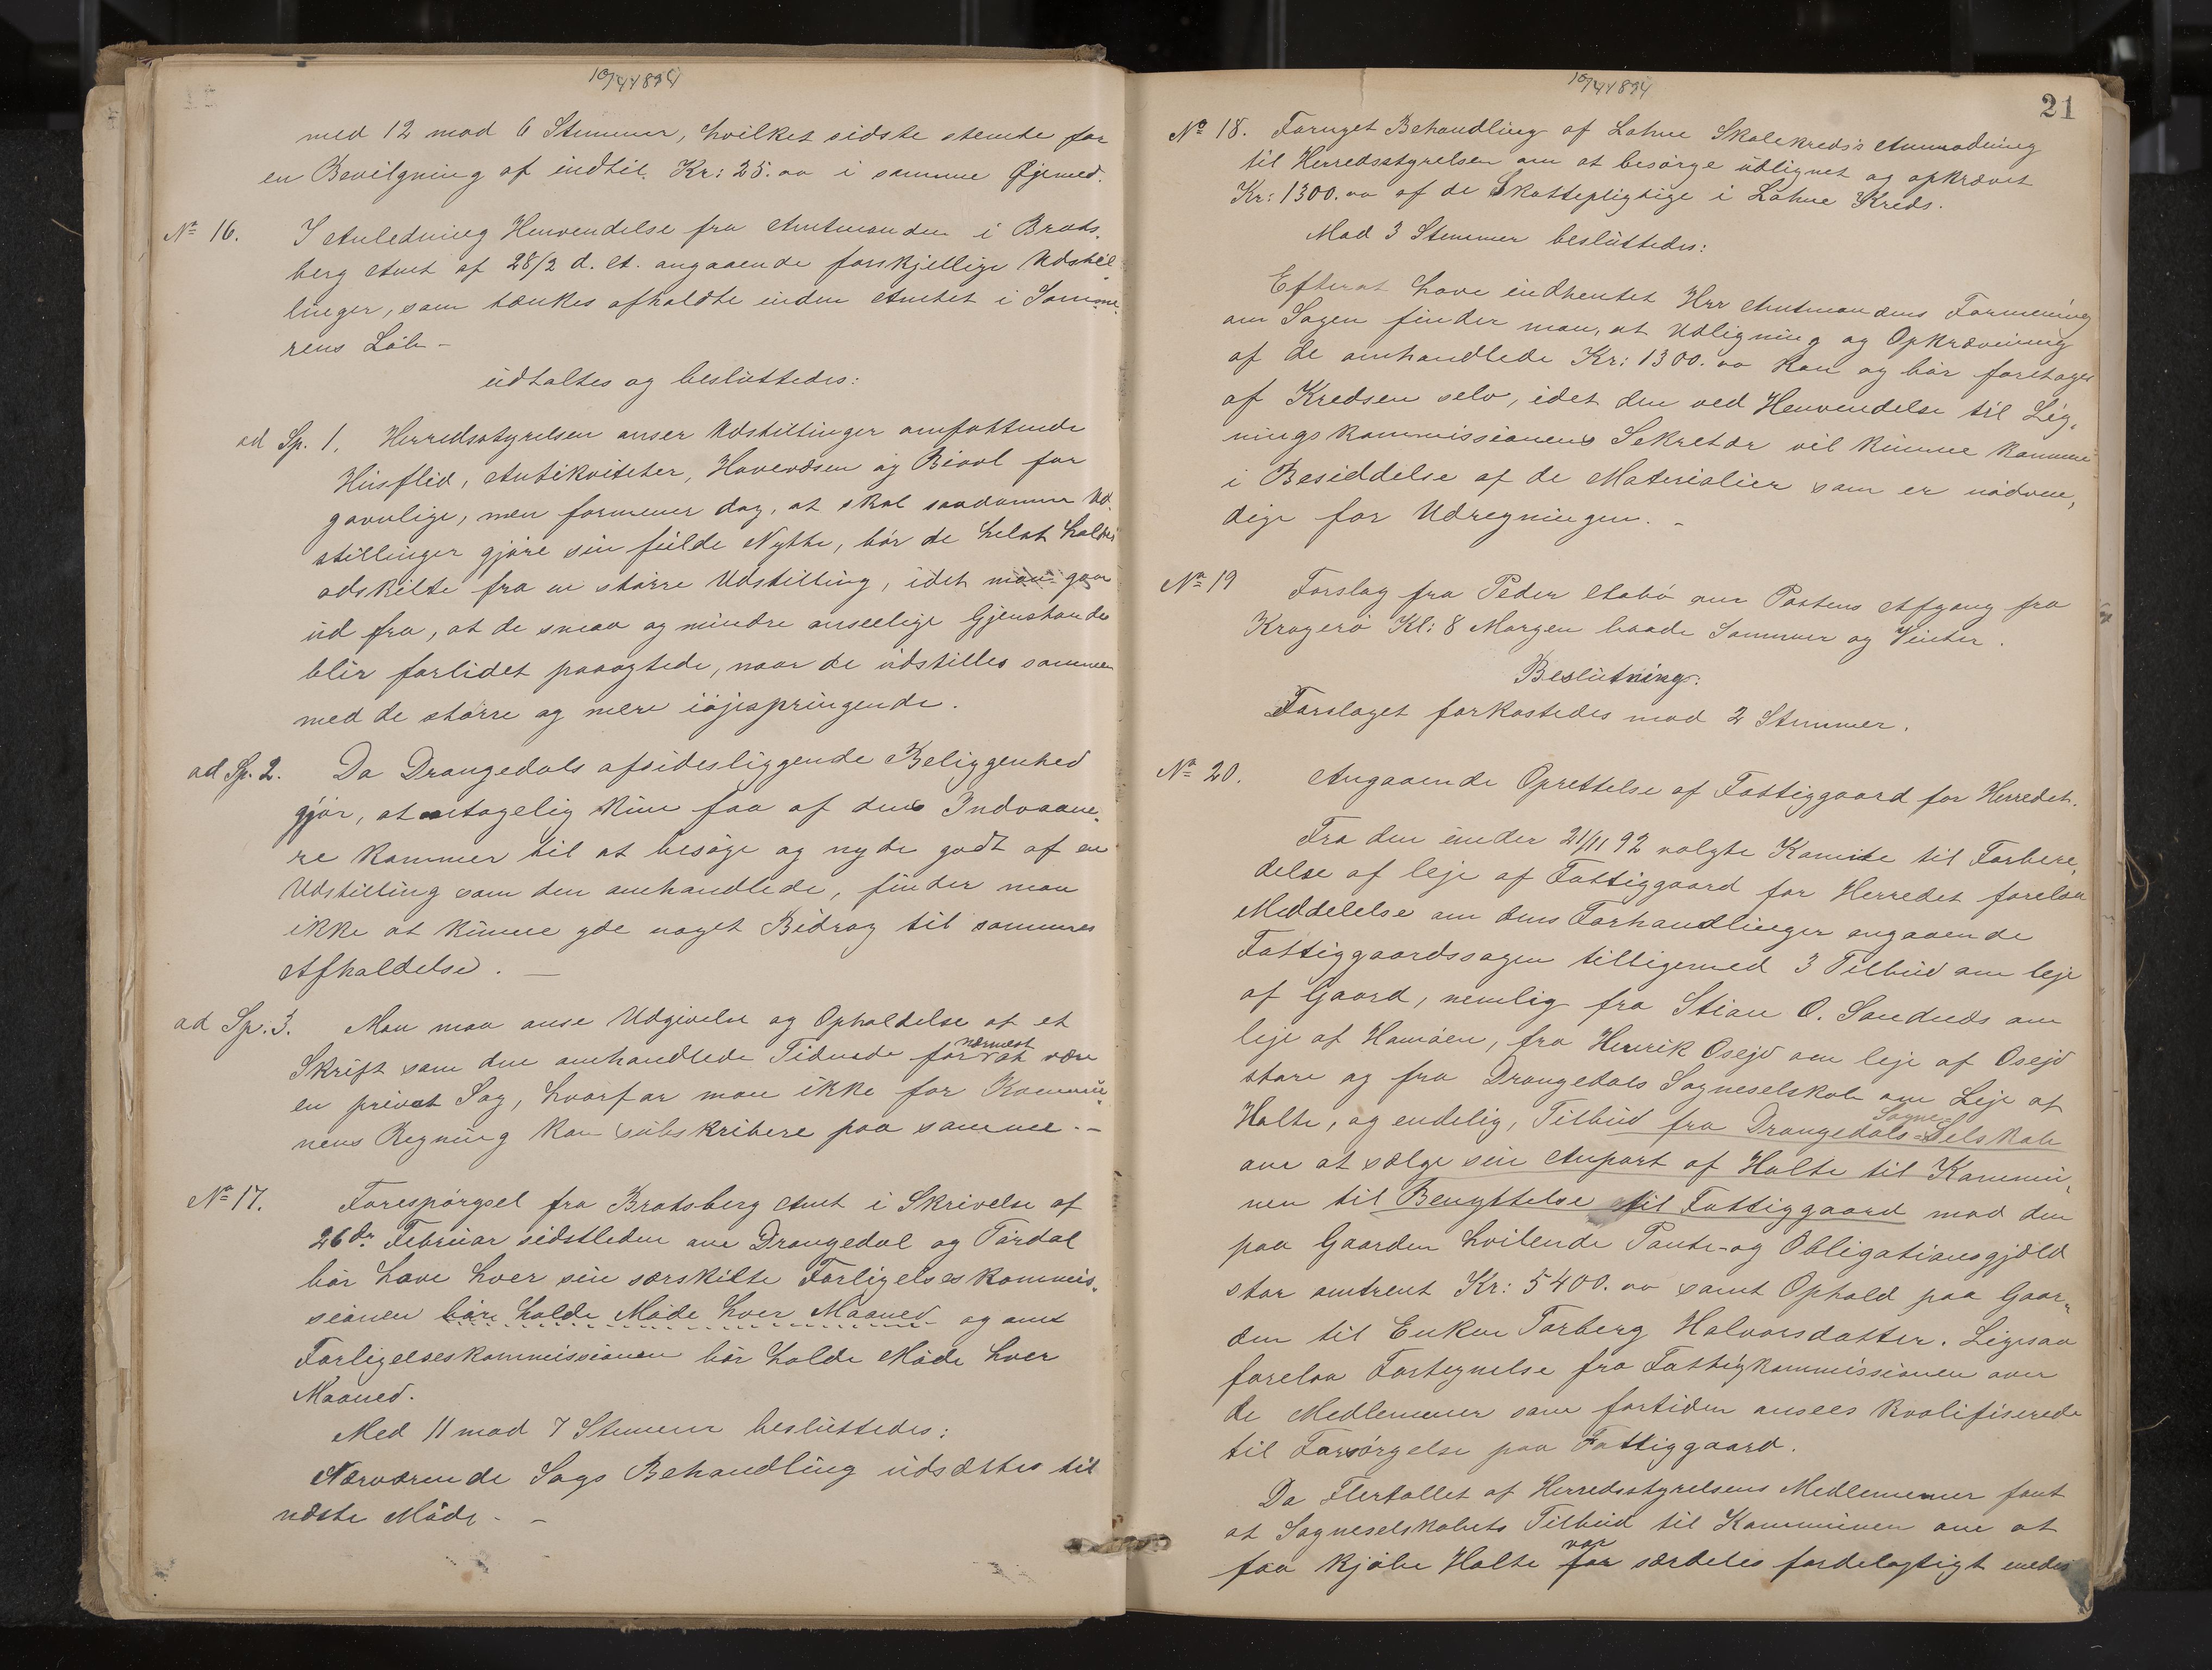 10/4 1894
med 12 mod 6 Stemmer, hvilket sidste stemte for
en Bevilgning af indtil Kr: 25.oo i samme Øjemed.
No 16. I Anledning Henvendelse fra Amtmanden i Brats-
berg Amt af 28/2 d. A. angaaende forskjellige Udstil-
linger, som tænkes afholdte inden Amtet i Somme-
rens Löb –
udtaltes og besluttedes:
ad Sp. 1. Herredsstyrelsen anser Udstillinger omfattende
Husflid, Antikviteter, Havevæsen og Biavl for
gavnlige, men formener dog, at skal saadanne Ud-
stillinger gjöre sin fulde Nytte, bör de helst holdes
adskilte fra en större Udstilling, idet man gaar
ud fra, at de smaa og mindre anseelige Gjenstande
blir forlidet paaagtede, naar de udstilles sammen
med de större og mere iöjespringende.
ad Sp. 2. Da Drangedals afsidesliggende Beliggenhed
gjör, at antagelig kun faa af dens Indvaane-
re kommer til at besöge og nyde godt af en
Udstilling som den omhandlede, finder man
ikke at kunne yde noget Bidrag til sammes
Afholdelse. —
ad Sp. 3. Man maa anse Udgivelse og Opholdelse af et
Skrift som den omhandlede Tidende for nærmest at være
en privat Sag, hvorfor man ikke for Kommu-
nens Regning kan subskribere paa samme. –
No 17. Forespörgsel fra Bratsberg Amt i Skrivelse af
26de Februar sidstleden om Drangedal og Tördal
bör have hver sin særskilte Forligelseskommis-
sionen bör holde Möde hver Maaned og om
Forligelseskommissionen bör holde Möde hver
Maaned.
Med 11 mod 7 Stemmer besluttedes:
Nærværende Sags Behandling udsættes til
næste Möde. –
10/4 1894
21
No 18. Fornyet Behandling af Lohne Skolekreds's Anmodning
til Herredsstyrelsen om at besörge udlignet og opkrævet
Kr: 1300.oo af de Skattepligtige i Lohne Kreds.
Mod 3 Stemmer besluttedes:
Efterat have indhentet Hrr Amtmandens Formening
om Sagen finder man, at Udligning og Opkrævning
af de omhandlede Kr: 1300.oo kan og bör foretages
af Kredsen selv, idet den ved Henvendelse til Lig-
ningskommissionens Sekretær vil kunne komme
i Besiddelse af de Materialier som er nödven-
dige for Udregningen. –
No 19 Forslag fra Peder Aabö om Postens Afgang fra
Kragerö Kl: 8 Morgen baade Sommer og Vinter.
Beslutning:
Forslaget forkastedes mod 2 Stemmer.
No 20. Angaaende Oprettelse af Fattiggaard for Herredet.
Fra den under 21/11 92 valgte Komite til Forbere-
delse af leje af Fattiggaard for Herredet forelaa
Meddelelse om dens Forhandlinger angaaende
Fattiggaardssagen tilligemed 3 Tilbud om leje
af Gaard, nemlig fra Stian O. Sandnes om
leje af Hamöen, fra Henrik Osejd om leje af Osejd
store og fra Drangedals Sogneselskab om Leje af
Holte, og endelig, Tilbud fra Drangedals Sogne-Selskab
om at sælge sin Anpart af Holte til Kommu-
nen til Benyttelse til Fattiggaard mod den
paa Gaarden hvilende Pante- og Obligationsgjæld
stor omtrent Kr: 5400.oo samt Ophold paa Gaar-
den til Enken Torberg Halvorsdatter. Ligesaa
forelaa Fortegnelse fra Fattigkommissionen over
de Medlemmer som fortiden ansees kvalifiserede
til Forsörgelse paa Fattiggaard.
Da Flertallet af Herredsstyrelsens Medlemmer fant
at Sogneselskabets Tilbud til Kommunen om at
faa kjöbe Holte for var særdeles fordelagtigt